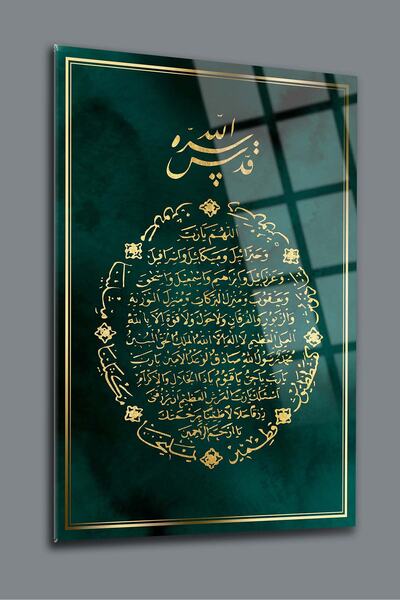 قدس الله سره
اللهم يا رب
وجبرائيل وميكائيل واسرافيل
وعزرائيل وابراهيم واسمعيل واسحق
ويعقوب ومنزل البركات ومنزل التورية
والزبور والفرقان ولا حول ولا قوة الا بالله
العلي العظيم لا اله الا الله الملك الحق المبين
محمد رسول الله صادق الوعد الامين يا رب
يا رب يا حي يا قيوم يا ذا الجلال والاكرام
اسئلك يا رب العرش العظيم ان ترزقني
رزقا حلالا طيبا برحمتك
يا ارحم الراحمين
قطمير
يمليخا